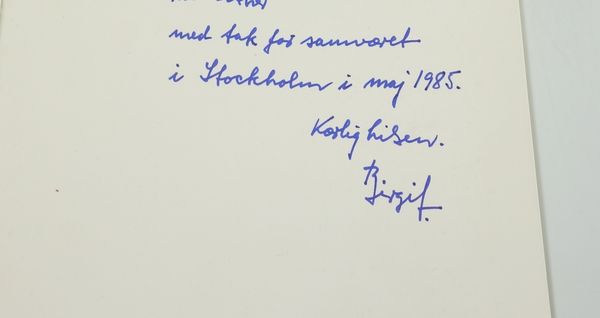 med tak for samværet
i Stockholm i maj 1985.
Kærlig hilsen.
Birgit.